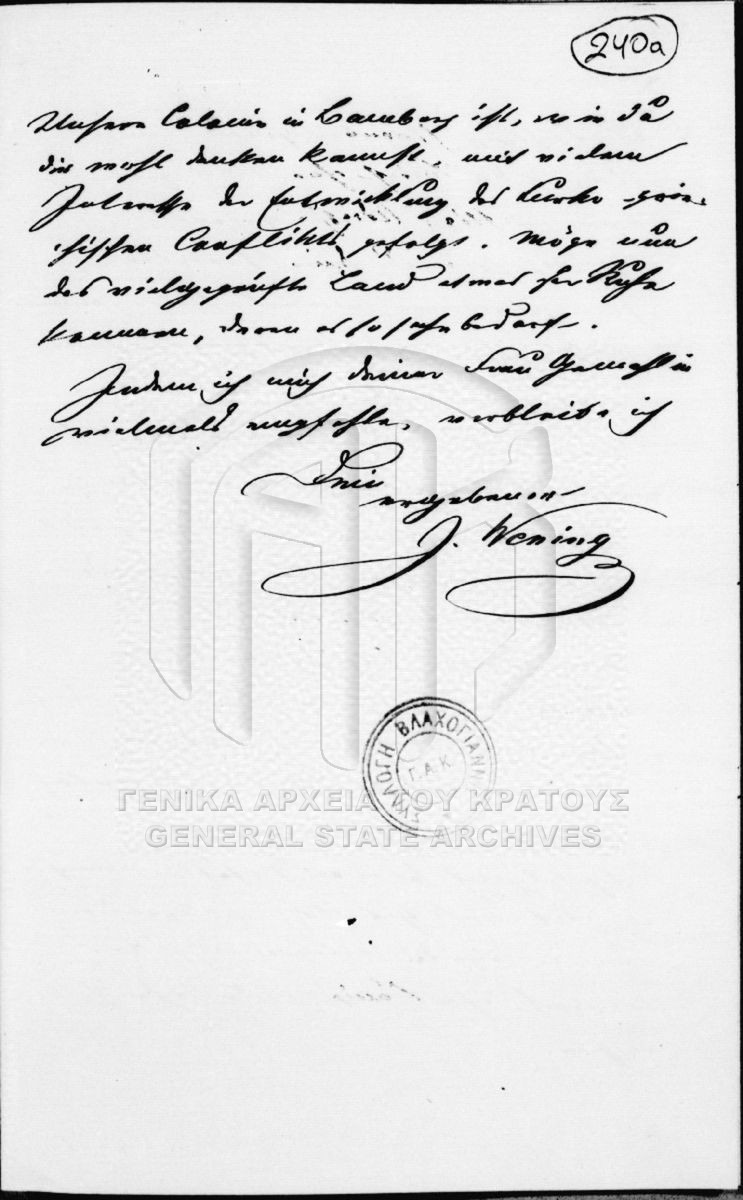 240a
Unsere Colonie in Bamberg ist, wie Du
dir wohl denken kannst, mit vielem
Interesse der Entwicklung des turko-grie-
chischen Conflikts gefolgt. Möge nun
das vielgeprüfte Land etwas zur Ruhe
kommen, deren es so sehr bedarf.
Indem ich mich deiner Frau Gemahlin
vielmals empfehle, verbleibe ich
Dein
ergebener
J. Wening
ΣΥΛΛΟΓΗ ΒΛΑΧΟΓΙΑΝΝ
Γ.Α.Κ.
ΓΕΝΙΚΑ ΑΡΧΕΙΑ ΤΟΥ ΚΡΑΤΟΥΣ
GENERAL STATE ARCHIVES